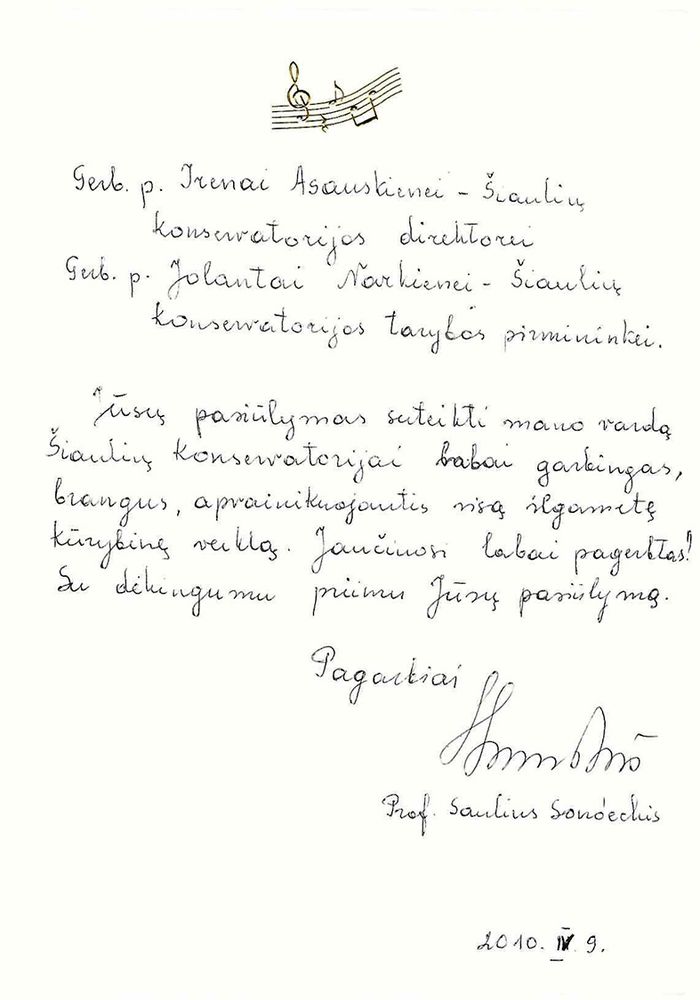 Gerb. p. Irenai Asauskienei – Šiaulių
konservatorijos direktorei
Gerb. p. Jolantai Narkienei – Šiaulių
konservatorijos tarybos pirmininkei.
Jūsų pasiūlymas suteikti mano vardą
Šiaulių konservatorijai labai garbingas,
brangus, apvainikuojantis visą ilgametę
kūrybinę veiklą. Jaučiuosi labai pagerbtas!
Su dėkingumu priimu Jūsų pasiūlymą.
Pagarbiai
Prof. Saulius Sondeckis
2010. IV. 9.